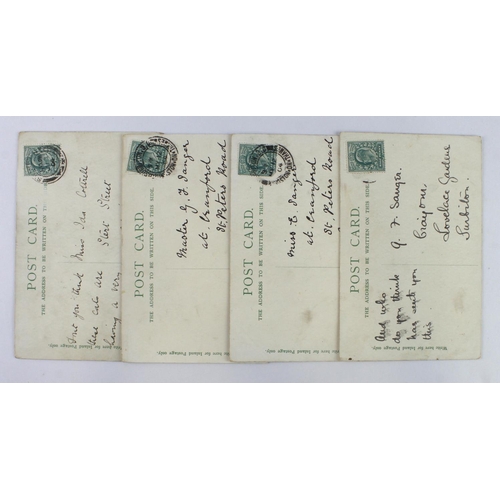 POST CARD.
THE ADDRESS TO BE WRITTEN ON THIS SIDE.
Don't you think Miss Ina
these cats are Street
having a very
POST CARD.
THE ADDRESS TO BE WRITTEN ON THIS SIDE.
Master G. F. Sanger
at Cranford
St. Peters Road
for Inland Postage only.
POST CARD.
THE ADDRESS TO BE WRITTEN ON THIS SIDE.
Miss E. Sanger
at Cranford
St. Peters Road
for Inland Postage only.
POST CARD.
THE ADDRESS TO BE WRITTEN ON THIS SIDE.
G. F. Sanger.
Craigour
Lovelace Gardens
Surbiton.
And who
do you think
has sent you
this
Write here for Inland Postage only.